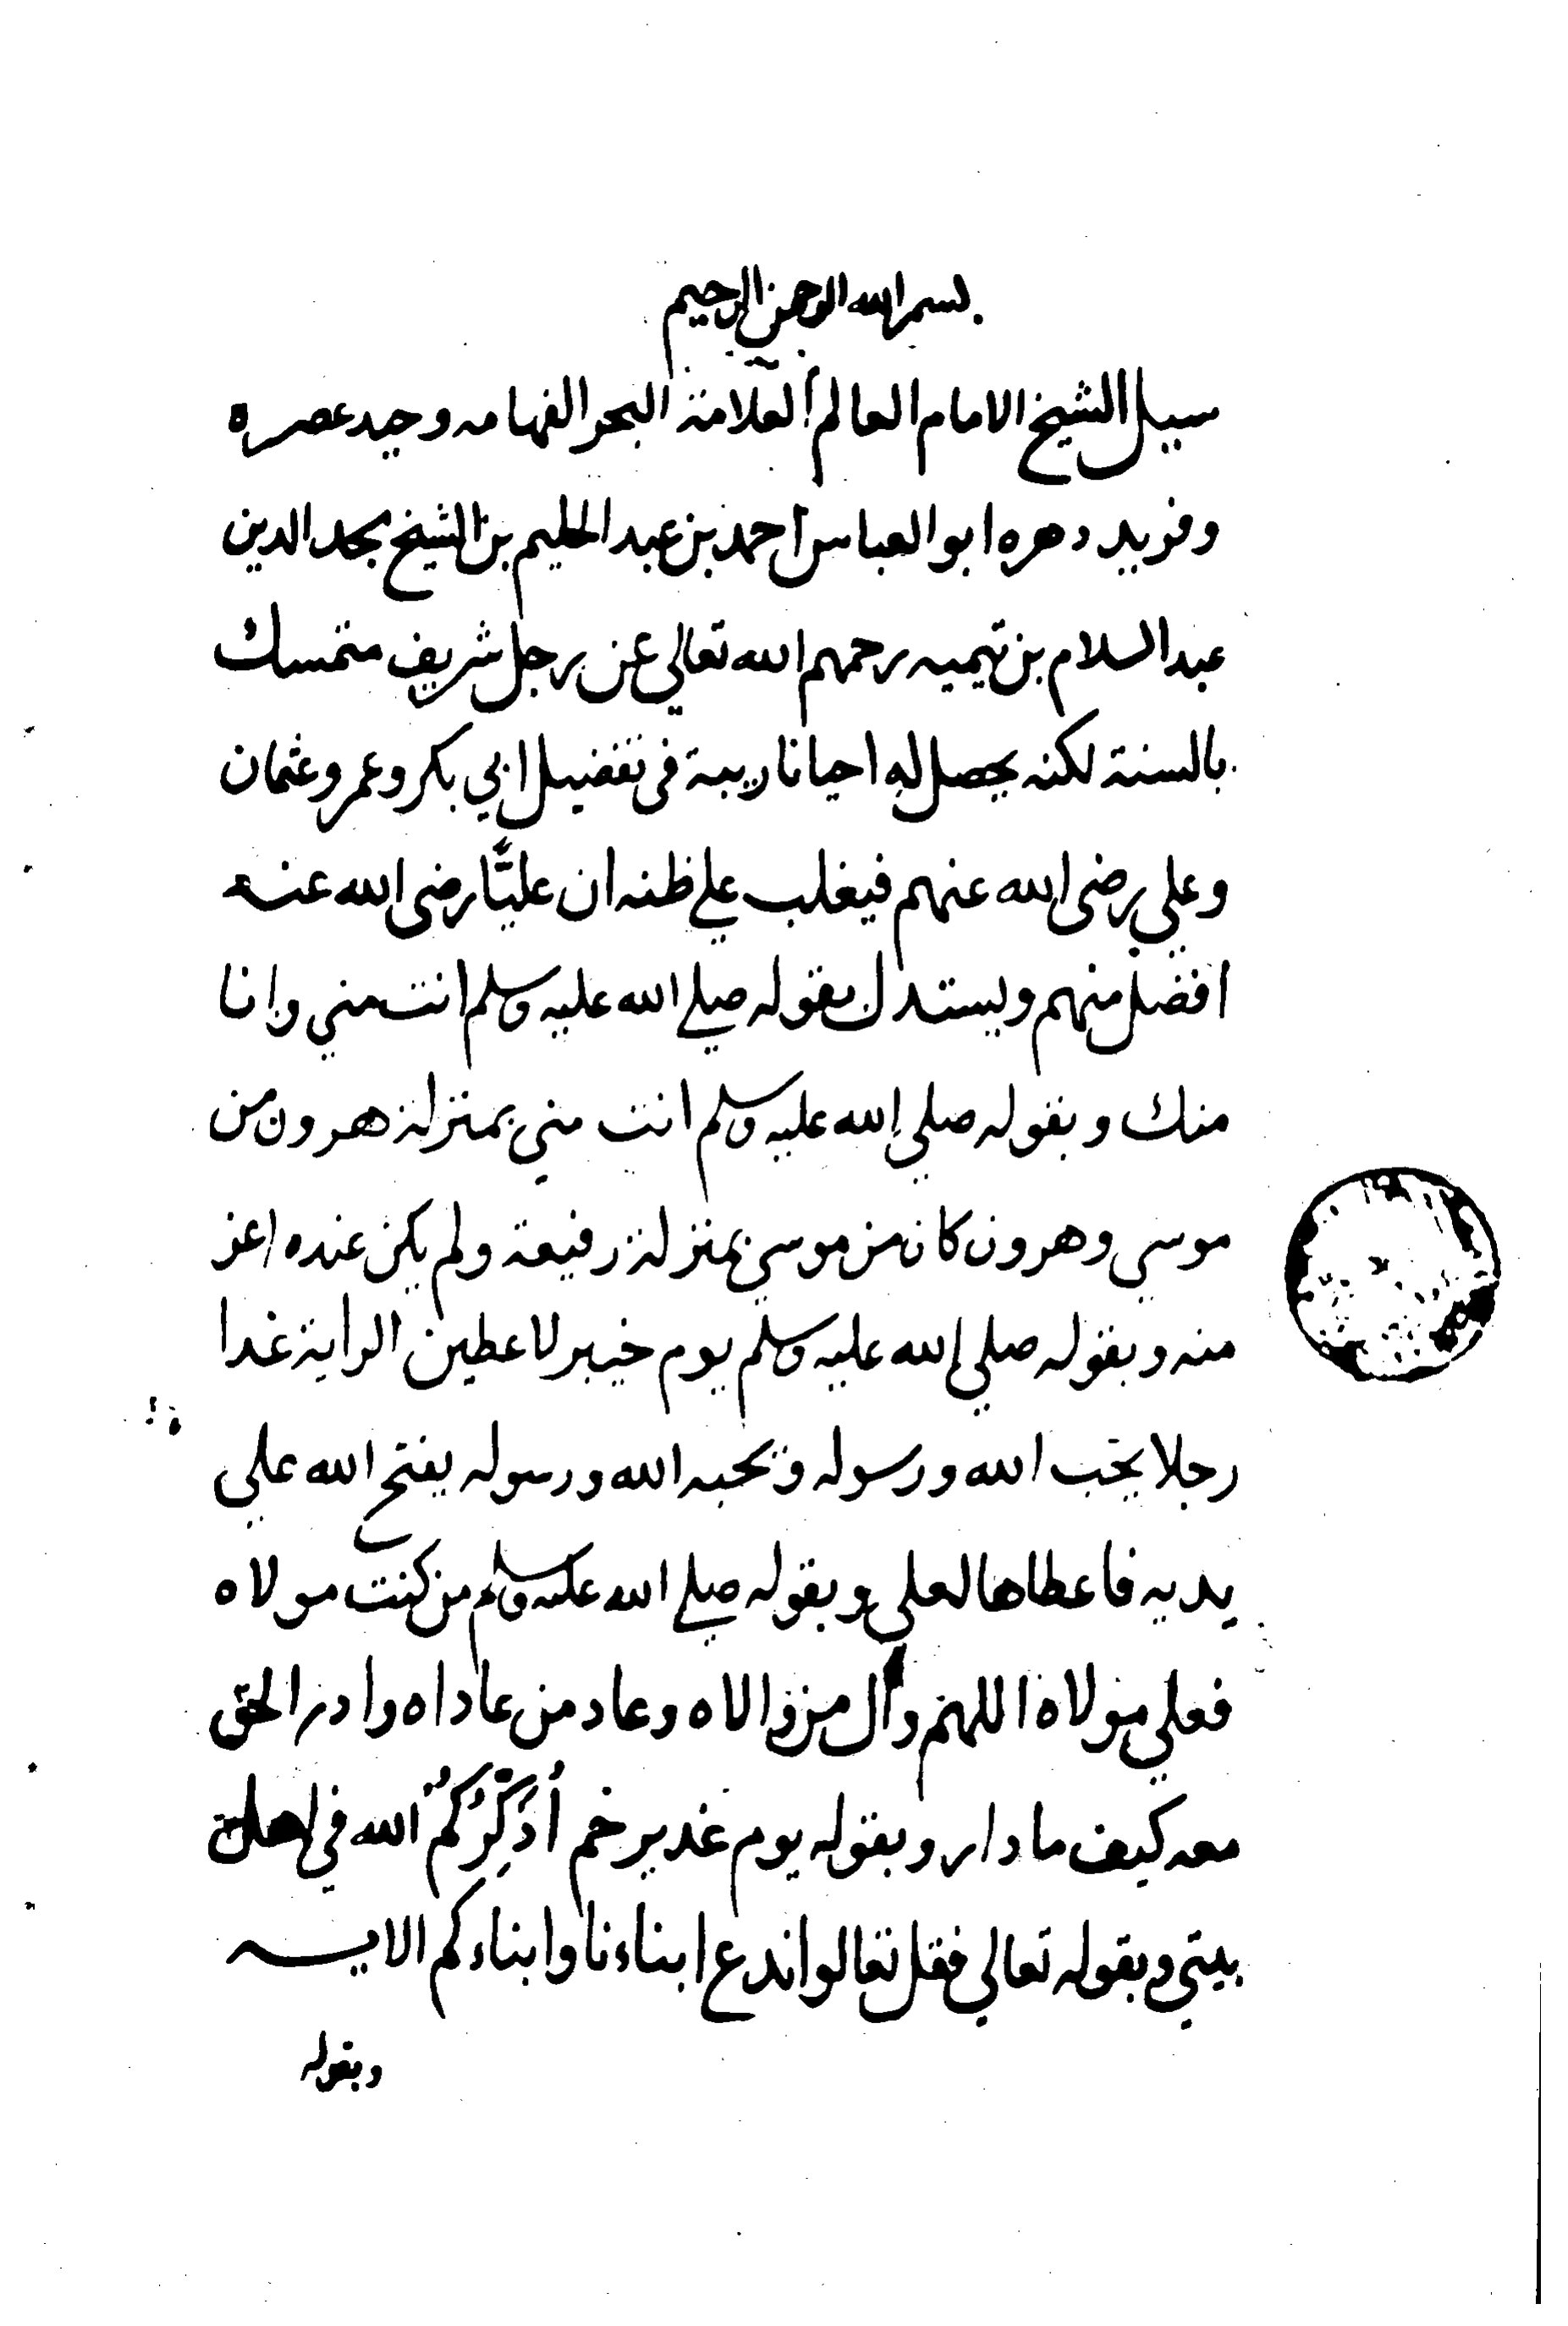 بسم الله الرحمن الرحيم
سييل الشيخ الامام العالم العلامة البحر الفهامه وحيد عصره
وفريد دهره ابو العباس احمد بن عبد الحليم بن الشيخ مجد الدين
عبد السلام بن تيميه رحمهم الله تعالي عن رجل شريف متمسك
بالسنة لكنه يحصل له احيانا ريبة في تفضيل ابي بكر وعمر وعثمان
وعلي رضي الله عنهم فيغلب علي ظنه ان عليًّا رضي الله عنه
افضل منهم ويستدل بقوله صلي الله عليه وسلم انت مني وانا
منك وبقوله صلي الله عليه وسلم انت مني بمنزلة هرون من
موسي وهرون كان من موسي بمنزلة رفيعة ولم يكن عنده اعز
منه وبقوله صلي الله عليه وسلم يوم خيبر لاعطين الراية غدا
رجلا يحب الله ورسوله ويحبه الله ورسوله يفتح الله علي
يديه فاعطاها لعلي وبقوله صلي الله عليه وسلم من كنت مولاه
فعلي مولاه اللهم وال من والاه وعاد من عاداه وادر الحق
معه كيف ما دار وبقوله يوم غدير خم أُذَكِّرُكُمُ الله في اهل
بيتي وبقوله تعالي فقل تعالوا ندع ابناءنا وابناءكم الايه
وبقوله